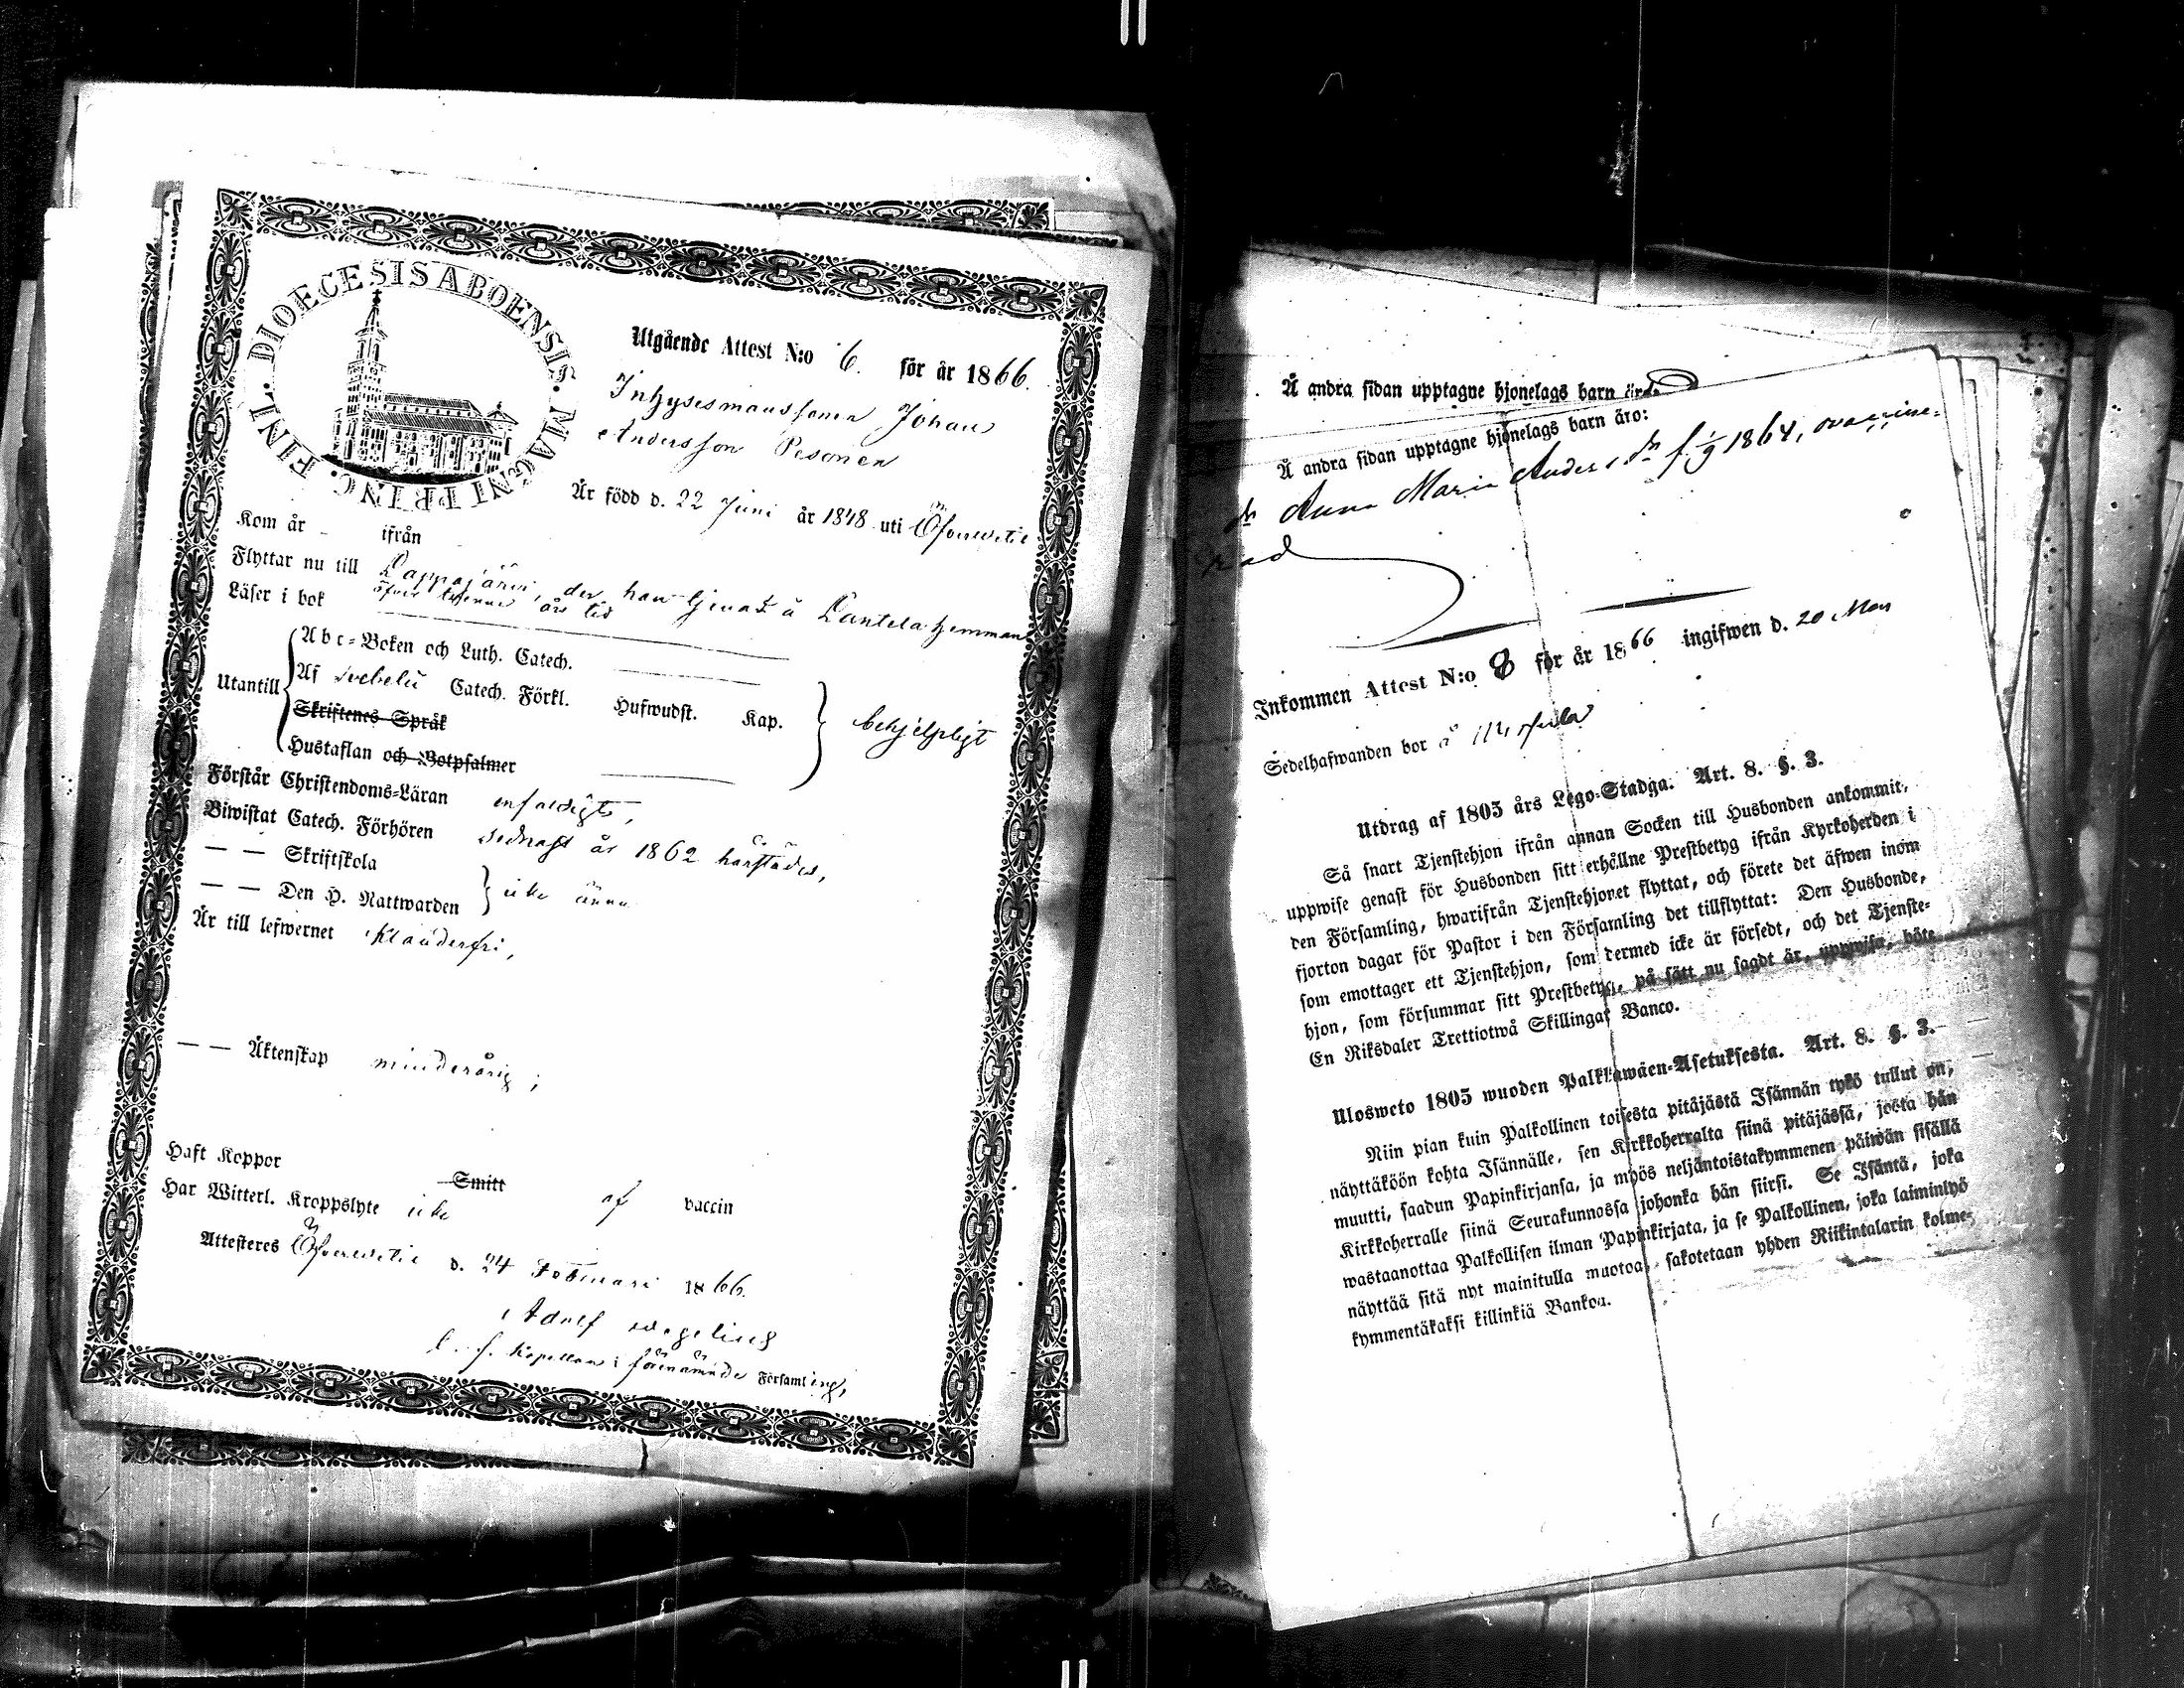 DIOECESIS ABOENSIS. MAGNI PRINC. FINL.
Utgående Attest N:o 6. för år 1866.
Inhysesmanssonen Johan
Andersson Pesonen
Är född d. 22 Juni år 1848 uti Öfvervetil
Kom år - ifrån
Flyttar nu till Lappajärvi, der han tjenat å Lantela hemman
öfver tvenne års tid
Läser i bok
Utantill
Abc-Boken och Luth. Catech.
Af Svebelii Catech. Förkl. Hufwudst. Kap.
Skriftenes Språk
Hustaflan och Botpsalmer
behjelpligt
Förstår Christendoms-Läran enfaldigt,
Biwistat Catech. Förhören sednast år 1862 härstädes,
— — Skriftskola
— — Den H. Nattwarden
icke ännu
Är till lefwernet klanderfri,
— — Äktenskap minderårig;
Haft Koppor Smitt af vaccin
Har Witterl. Kroppslyte icke
Attesteres Öfvervetil d. 24 Februari 1866.
Adolf Wegelius
Kapellan i förenämnde Församling,
Å andra sidan upptagne hjonelags barn äro:
Å andra sidan upptagne hjonelags barn äro:
dr Anna Maria Anders dr f. 1/9 1864, ovaccine-
rad
Inkommen Attest N:o 8 för år 1866 ingifwen d. 20 Mars
Sedelhafwanden bor å
Utdrag af 1805 års Lego-Stadga. Art. 8. §. 3.
Så snart Tjenstehjon ifrån annan Socken till Husbonden ankommit,
uppwise genast för Husbonden sitt erhållne Prestbetyg ifrån Kyrkoherden i
den Församling, hwarifrån Tjenstehjonet flyttat, och förete det äfwen inom
fjorton dagar för Pastor i den Församling det tillflyttat: Den Husbonde,
som emottager ett Tjenstehjon, som dermed icke är försedt, och det Tjenste-
hjon, som försummar sitt Prestbetyg, på sätt nu sagdt är, uppwisa, böte
En Riksdaler Trettiotwå Skillingar Banco.
Ulosweto 1805 wuoden Palkkawäen-Asetuksesta. Art. 8. §. 3.
Niin pian kuin Palkollinen toisesta pitäjästä Isännän tykö tullut on,
näyttäköön kohta Isännälle, sen Kirkkoherralta siinä pitäjässä, josta hän
muutti, saadun Papinkirjansa, ja myös neljäntoistakymmenen päiwän sisällä
Kirkkoherralle siinä Seurakunnossa johonka hän siirsi. Se Isäntä, joka
wastaanottaa Palkollisen ilman Papinkirjata, ja se Palkollinen, joka laiminlyö
näyttää sitä nyt mainitulla muotoa, sakotetaan yhden Riikintalarin kolme-
kymmentäkaksi killinkiä Bankoa.